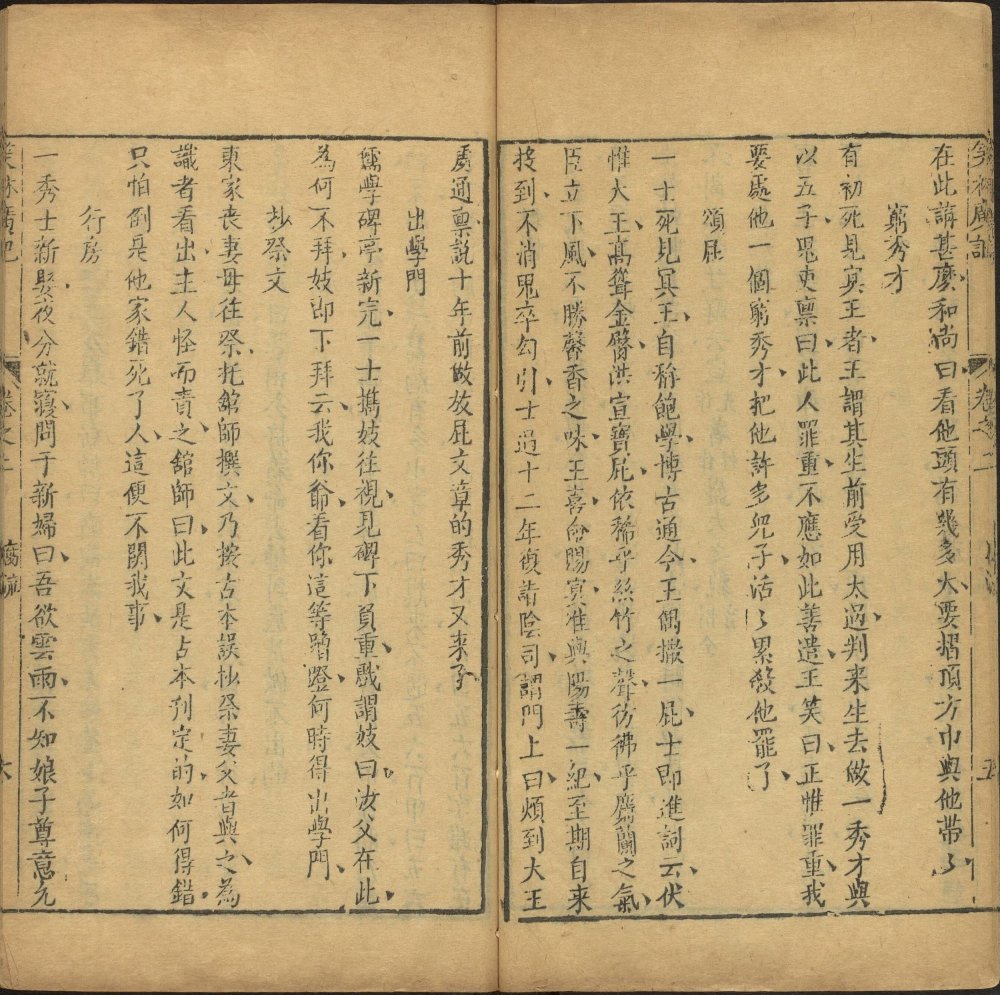 笑林廣記 卷之二 五
在此講甚麼和尚曰看他頭有幾多大要摺頂方巾與他帶帶
窮秀才
有初死見冥王者王謂其生前受用太過判来生去做一秀才與
以五子鬼吏禀曰此人罪重不應如此善遣王笑曰正惟罪重我
要處他一個窮秀才把他許多兒子活〻累殺他罷了
頌屁
一士死見冥王自称飽學博古通今王偶撒一屁士即進詞云伏
惟大王高聳金臀洪宣寶屁依稀乎絲竹之聲彷彿乎麝蘭之氣
臣立下風不勝馨香之味王喜命賜宴准與陽壽一紀至期自来
投到不消鬼卒勾引士過十二年復詣陰司謂門上曰煩到大王
處通禀説十年前做放屁文章的秀才又来了
出學門
儒學碑亭新完一士携妓往視見碑下負重戲謂妓曰汝父在此
為何不拜妓即下拜云我你爺看你這等蹭蹬何時得出學門
抄祭文
東家丧妻母往祭托舘師撰文乃按古本誤抄祭妻父者與之為
識者看出主人怪而責之舘師曰此文是古本刋定的如何得錯
只怕倒是他家錯死了人這便不関我事
行房
一秀士新娶夜分就寢問于新婦曰吾欲雲雨不知娘子尊意允
笑林廣記 卷之二 腐流 六